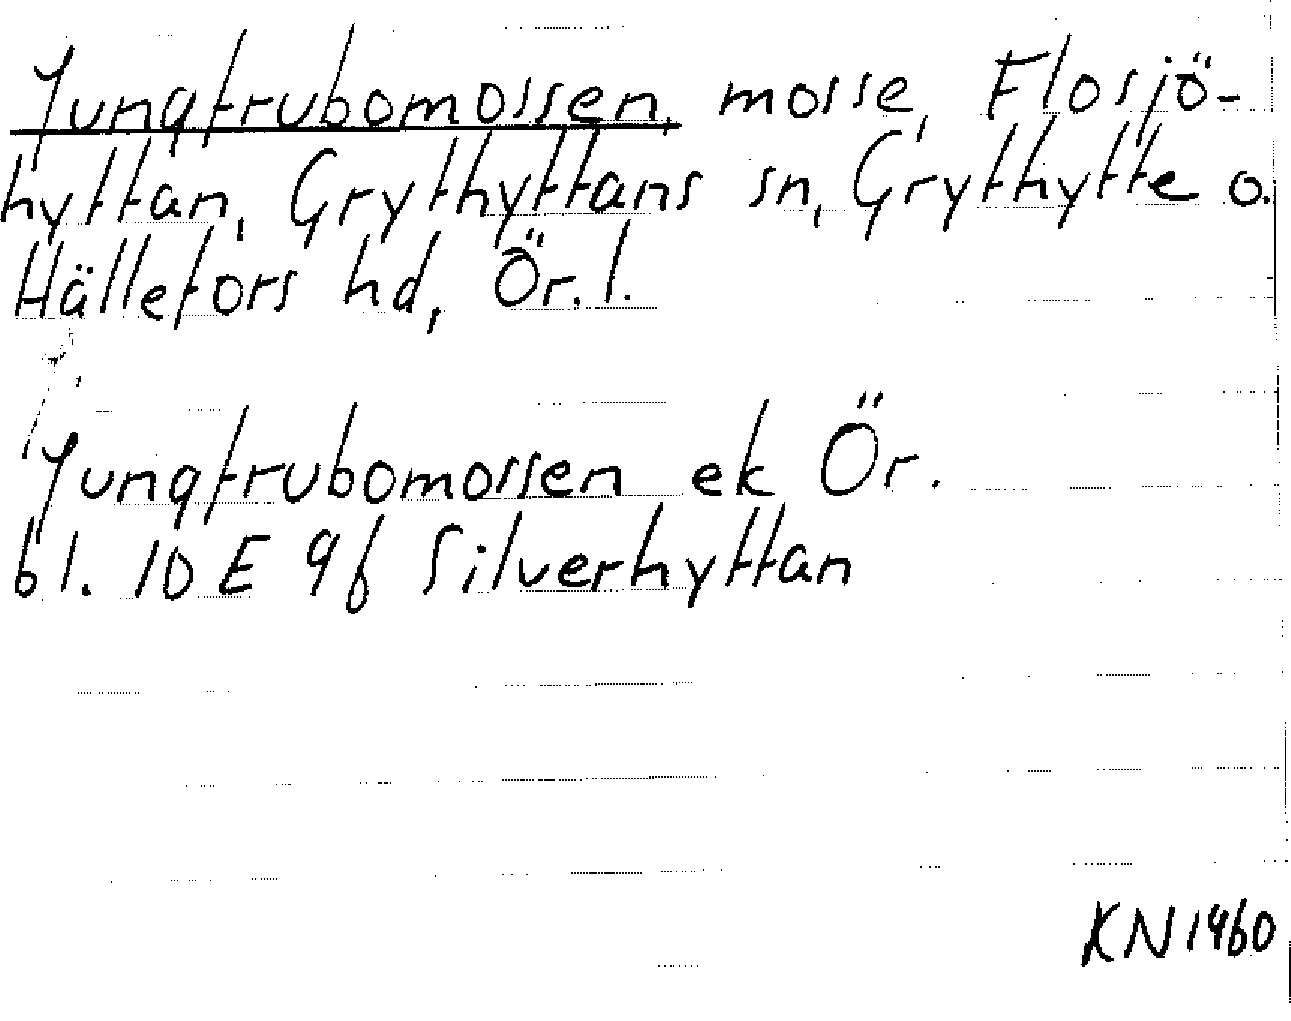 Jungfrubomossen, mosse, Flosjö-
hyttan, Grythyttans sn, Grythytte o.
Hällefors hd, Ör. l.
Jungfrubomossen ek Ör.
bl. 10 E 9f Silverhyttan
KN 1960